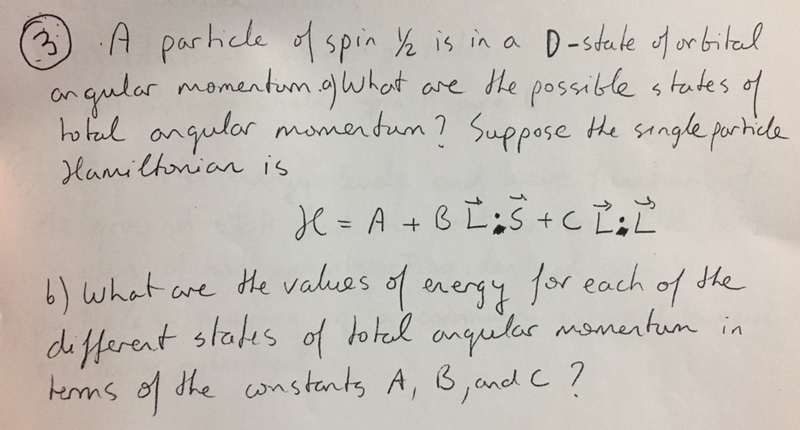 ③ . A particle of spin 1/2 is in a D-state of orbital
angular momentum. a) What are the possible states of
total angular momentum? Suppose the single particle
Hamiltonian is
H = A + B L⃗ · S⃗ + C L⃗ · L⃗
b) What are the values of energy for each of the
different states of total angular momentum in
terms of the constants A, B, and C ?